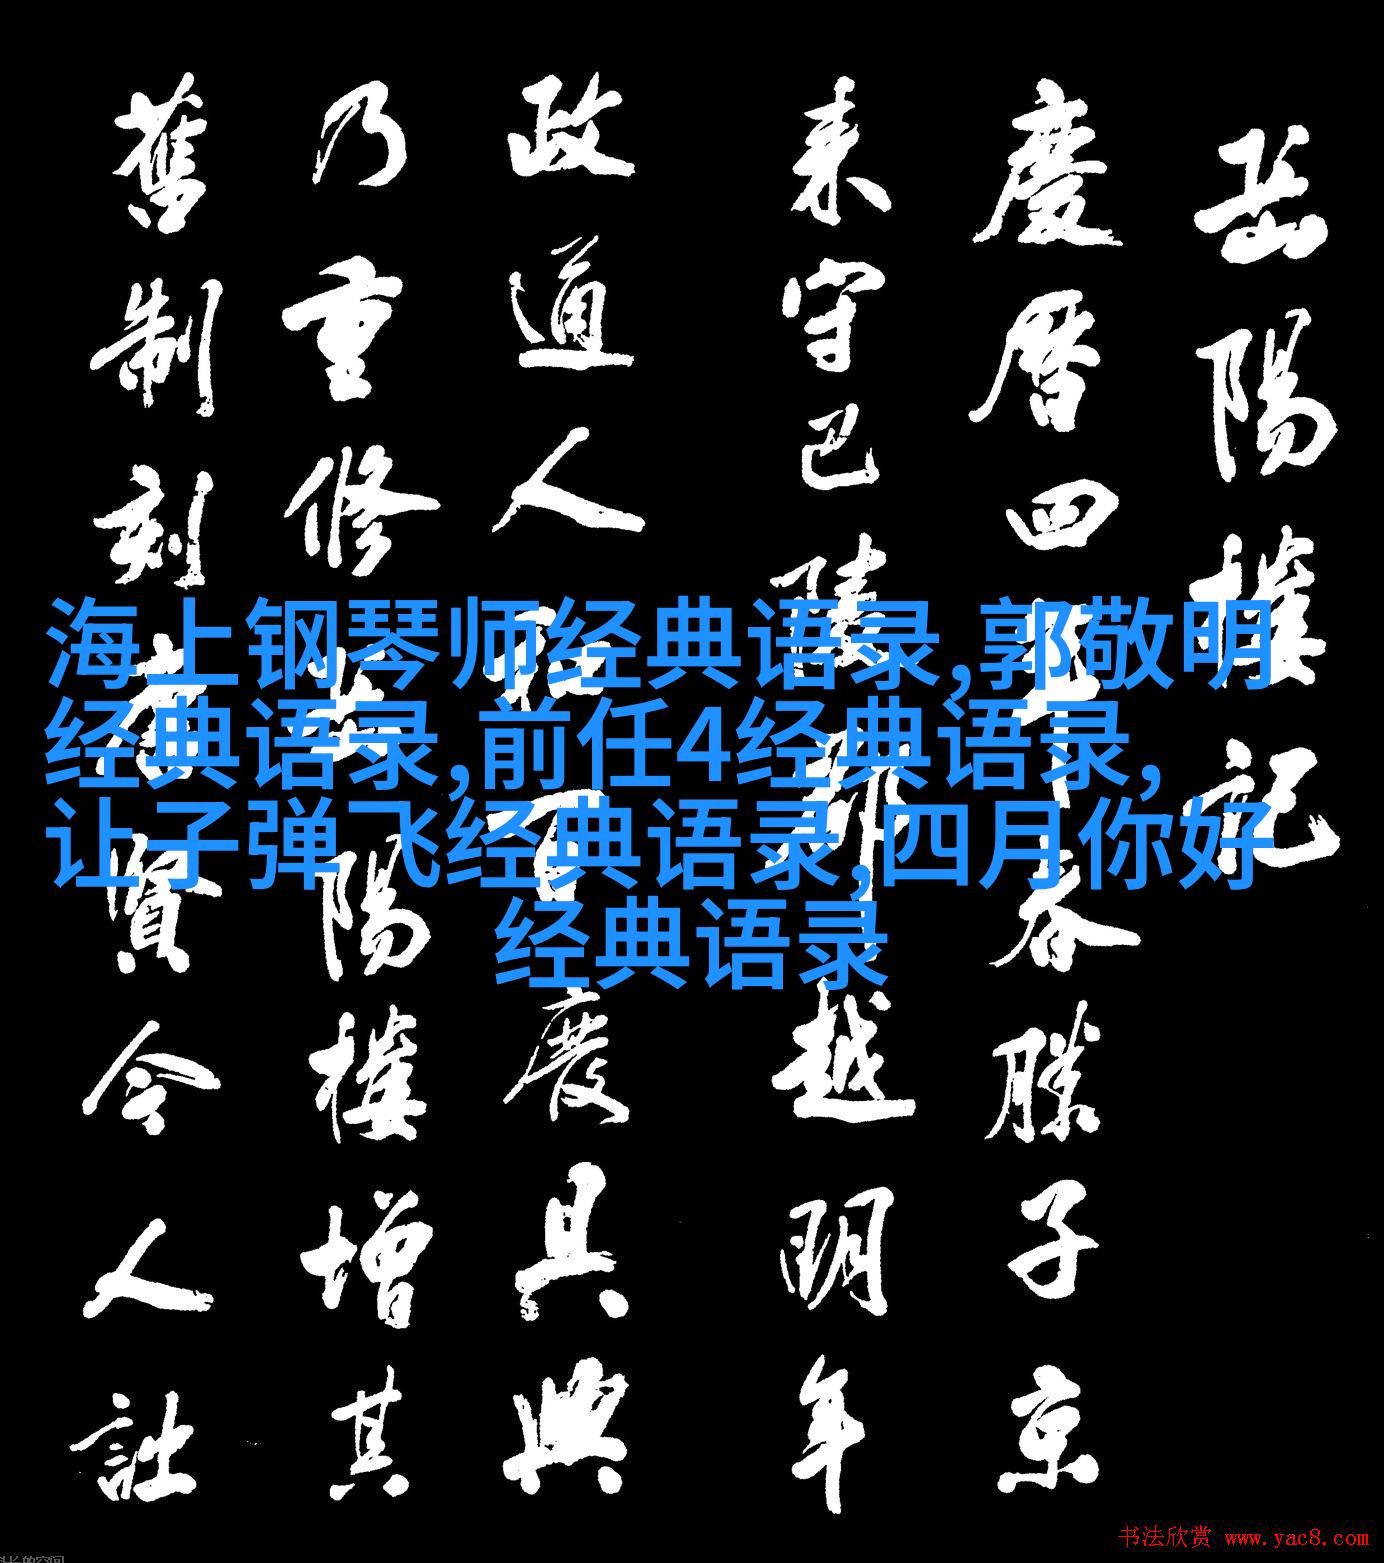 岳陽樓記
慶曆四年春滕子京
来守巴陵郡越明年
政通人和百廢具興
乃重修岳陽樓增其
舊制刻唐賢今人詩
海上钢琴师经典语录,郭敬明
经典语录,前任4经典语录,
让子弹飞经典语录,四月你好
经典语录
书法欣赏 www.yac8.com